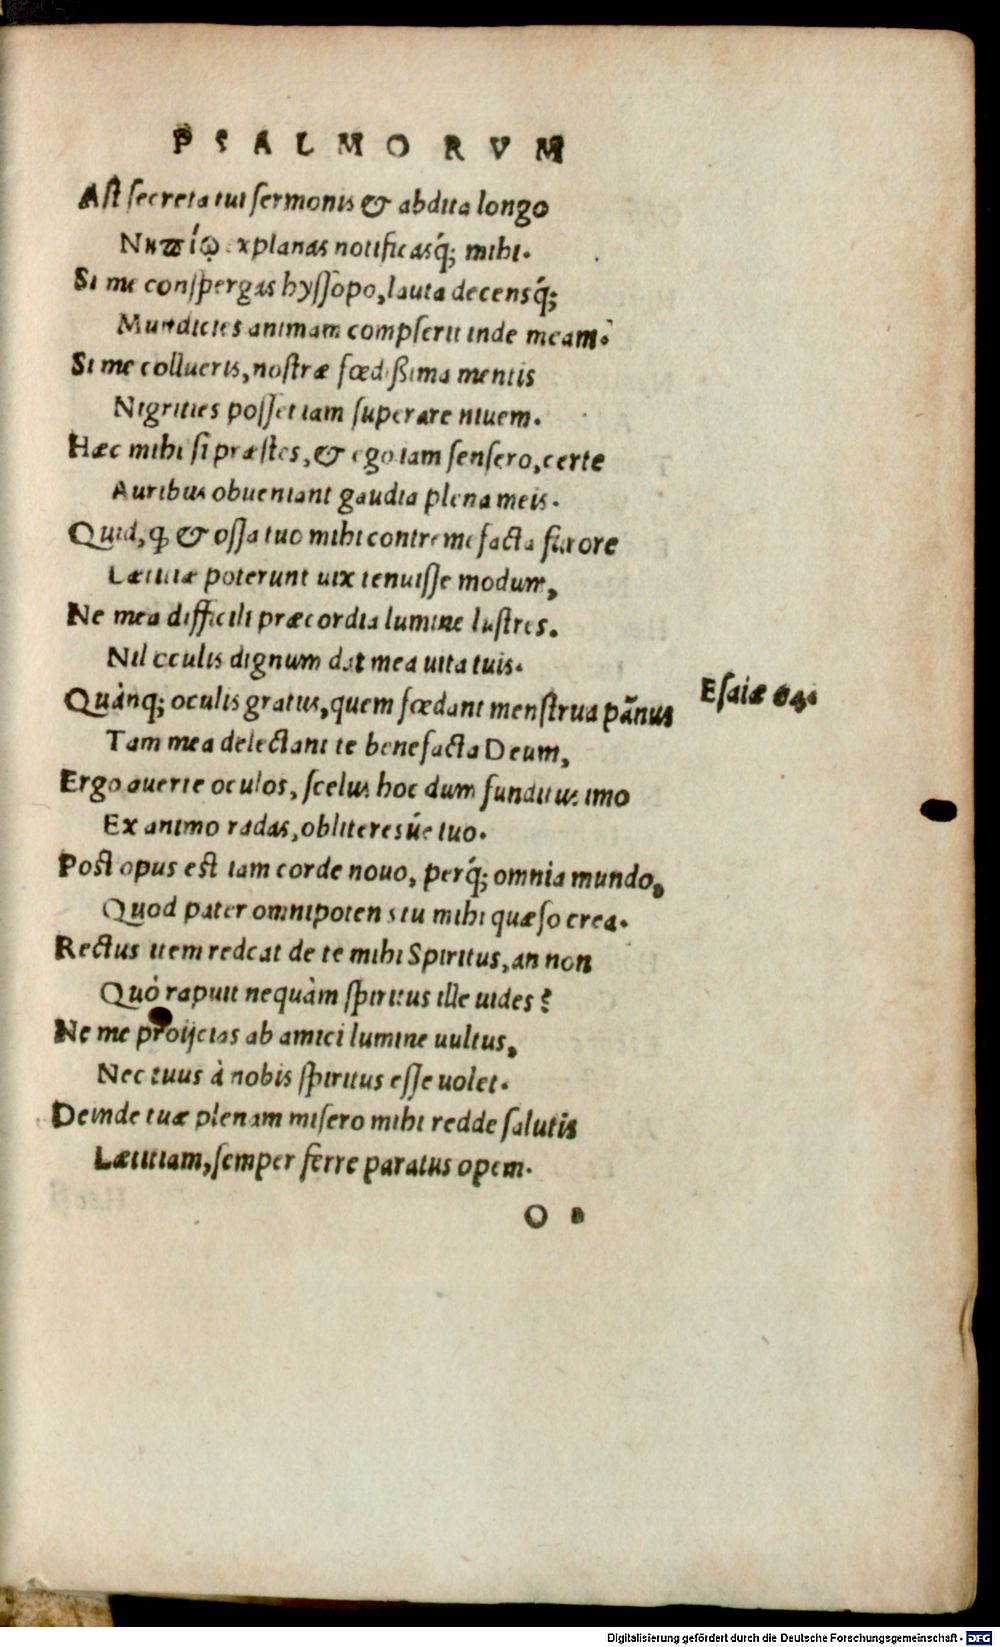 PSALMORVM
Ast secreta tui sermonis & abdita longo
Νηπίῳ explanas notificasq́; mihi.
Si me conspergas hyssopo, lauta decensq́;
Mundicies animam compserit inde meam.
Si me collueris, nostræ fœdißima mentis
Nigrities posset iam superare niuem.
Hæc mihi si præstes, & ego iam sensero, certe
Auribus obueniant gaudia plena meis.
Quid, ꝙ & ossa tuo mihi contremefacta furore
Lætitiæ poterunt uix tenuisse modum,
Ne mea difficili præcordia lumine lustres.
Nil oculis dignum dat mea uita tuis.
Quànq; oculis gratus, quem fœdant menstrua pãnus
Esaiæ 64.
Tam mea delectant te benefacta Deum,
Ergo auerte oculos, scelus hoc dum funditus imo
Ex animo radas, obliteresúe tuo.
Post opus est iam corde nouo, perq́; omnia mundo,
Quod pater omnipotens tu mihi quæso crea.
Rectus item redeat de te mihi Spiritus, an non
Quò rapuit nequàm spiritus ille uides?
Ne me proijcias ab amici lumine uultus,
Nec tuus à nobis spiritus esse uolet.
Deinde tuæ plenam misero mihi redde salutis
Lætitiam, semper ferre paratus opem.
O
Digitalisierung gefördert durch die Deutsche Forschungsgemeinschaft - DFG